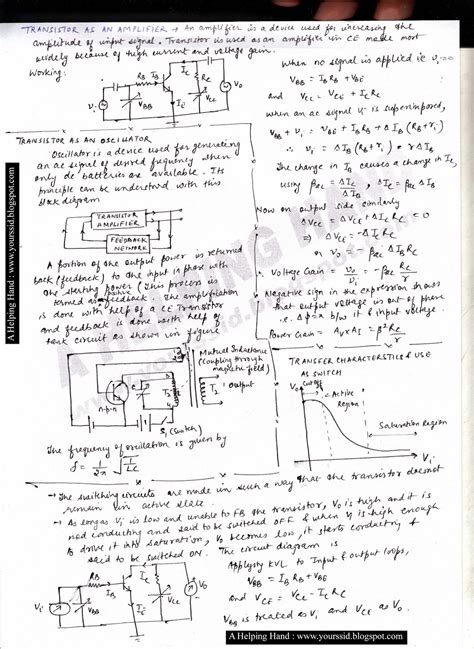 TRANSISTOR AS AN AMPLIFIER → An amplifier is a device used for increasing the
amplitude of input signal. Transistor is used as an amplifier in CE mode most
widely because of high current and voltage gain.
Working:
RB IB IC RC
VBB IE VCE V0
When no signal is applied ie vi=0
VBB = IBRB + VBE
and VCC = VCE + ICRC
when an ac signal vi is superimposed,
VBB + vi = VBE + IBRB + ΔIB (RB+ri)
∴ vi = ΔIB (RB+ri) = rΔIB
The change in IB causes a change in IC,
using βac = ΔIC/ΔIB , ΔIC = βac ΔIB
Now on output side similarly
ΔVCC = ΔVCE + ΔICRC = 0
⇒ ΔVCE = -ΔICRC
or v0 = -βac ΔIB RC
∴ Voltage Gain = v0/vi = -βac RC/r
* Negative sign in the expression shows
that output voltage is out of phase
i.e. Δφ=π b/w it & input voltage.
Power Gain = AV×AI = β²RC/r
TRANSISTOR AS AN OSCILLATOR
Oscillator is a device used for generating
an ac signal of desired frequency when
only dc batteries are available. Its
principle can be understood with this
block diagram
TRANSISTOR
AMPLIFIER
FEEDBACK
NETWORK
A portion of the output power is returned
back (feedback) to the input in phase with
the starting power (This process is
termed as positive feedback. The amplification
is done with help of a CE Transistor
and feedback is done with help of
tank circuit as shown in figure
Mutual Inductance
(Coupling through
magnetic field)
T2 Output
n-p-n
S1 (Switch)
The frequency of oscillation is given by
f = 1/2π √1/LC
TRANSFER CHARACTERISTICS & USE
AS SWITCH
V0 Cut off
Active
Region
Saturation Region
Vi
→ The switching circuits are made in such a way that the transistor doesnot
remain in active state.
→ As long as Vi is low and unable to FB the transistor, V0 is high and it is
not conducting and said to be switched OFF & when Vi is high enough
to drive it into saturation, V0 becomes low, it starts conducting &
said to be switched ON. The circuit diagram is
Applying KVL to Input & output loops,
VBB = IBRB + VBE
and VCE = VCC - ICRC
VBB is treated as Vi and VCE as V0.
Vi RB IB VBB IC IE RC VCC V0
A Helping Hand : www.yourssid.blogspot.com
A Helping Hand : www.yourssid.blogspot.com